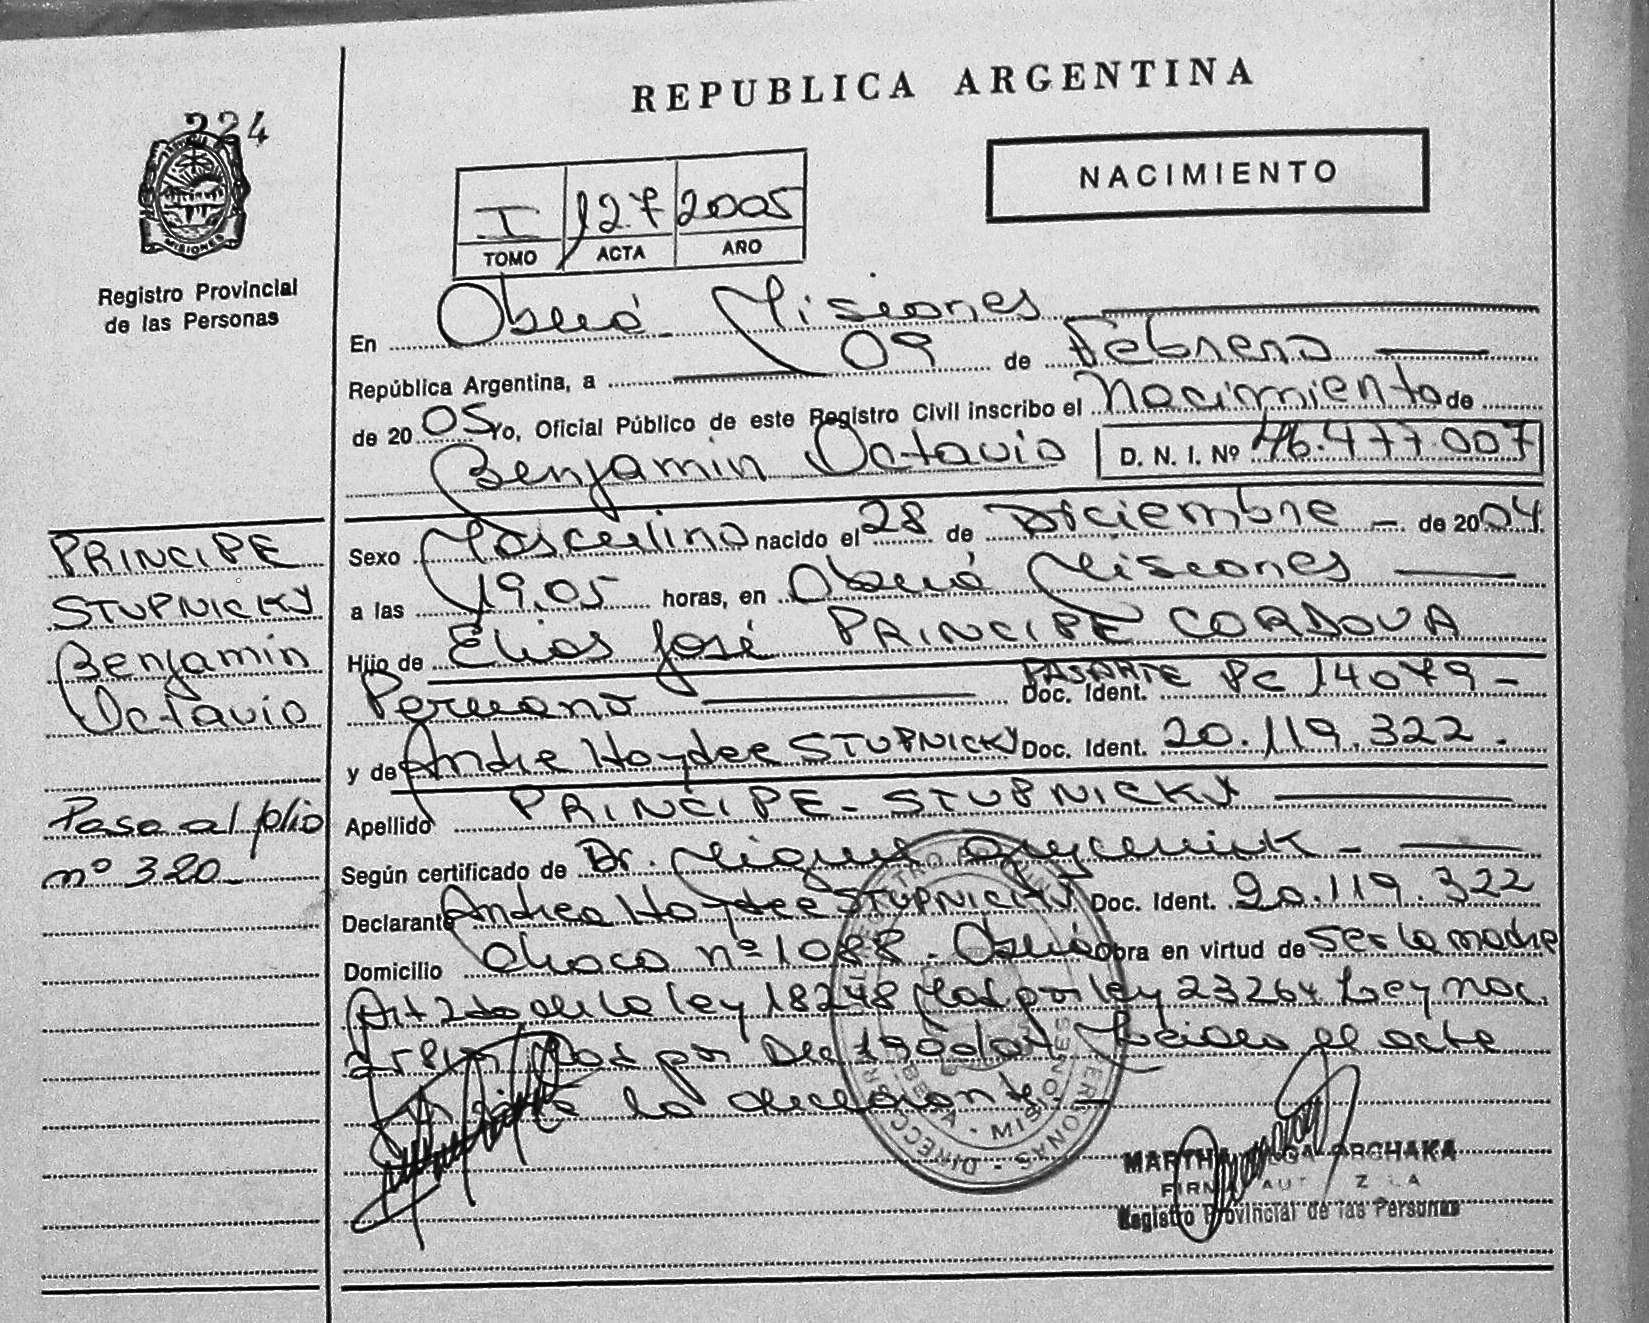 224
MISIONES
Registro Provincial
de las Personas
REPUBLICA ARGENTINA
NACIMIENTO
I 127 2005
TOMO ACTA AÑO
En Oberá Misiones
República Argentina, a 09 de Febrero
de 2005 Yo, Oficial Público de este Registro Civil inscribo el Nacimiento de
Benjamin Octavio D. N. I. Nº 46.477.007
PRINCIPE
STUPNICKY
Benjamin
Octavio
Paso al folio
nº 320
Sexo Masculino nacido el 28 de Diciembre de 2004
a las 19.05 horas, en Oberá Misiones
Hijo de Elias José PRINCIPE CORDOVA
Peruano Doc. Ident. PASAPTE Pc 14079
y de Andre Haydee STUPNICKY Doc. Ident. 20.119.322.
Apellido PRINCIPE - STUPNICKY
Según certificado de Dr. Miguel
Declarante Andrea Haydee STUPNICKY Doc. Ident. 20.119.322
Domicilio Chaco nº 1088. Oberá obra en virtud de ser la madre
Art 2do de la ley 18248 Mod por ley 23264 Ley nac.
Mod por Dec el acte
la declarante
MISIONES
MARTHA OLGA ARCHAKA
FIRMA AUTORIZADA
Registro Provincial de las Personas